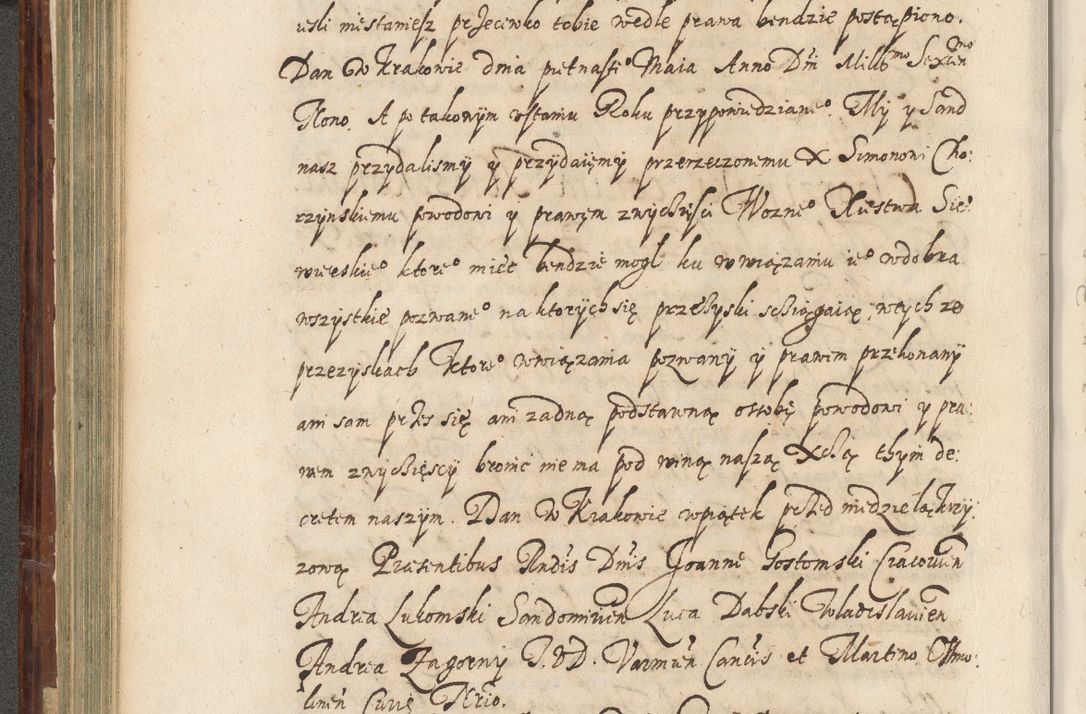 iesli niestaniesz przeciwko tobie wedle prawa bendzie postąpiono.
Dan w Krakowie dnia pietnasto Maia Anno Dni Millmo Sexcenmo
Nono. A po takowym wstaniu Roku przypowiedzianeo. My y Sand
nasz przydalismy y przydaięmy przerzeczonemu X Simonowi Cho:
rzynskiemu powodowi y prawem zwyciężci Wozneo Xiestwa Sie:
wierskieo ktoreo mieć bendzie mogl ku wwiązaniu ieo w dobra
wszystkie pozwaneo na ktorych się przezyski sciągaią, w tych ze
przezyskach ktoreo wwiązania pozwany y prawem przekonany
ani sam przes się ani zadną podstawną ossobę powodowi y pra:
wem zwyciescy bronic nie ma pod winą naszą Xcą thym de:
cretem naszym. Dan w Krakowie w piątek przed niedzielą krzy:
zową Praesentibus Rndis Dnis Joanne Gostomski Cracovien
Andrea Lukomski Sandomirien Luca Dabski Wladislavien
Andrea Zagorny J. V. D. Varmien Cancis et Martino Osmo:
linen Curię Nrio.